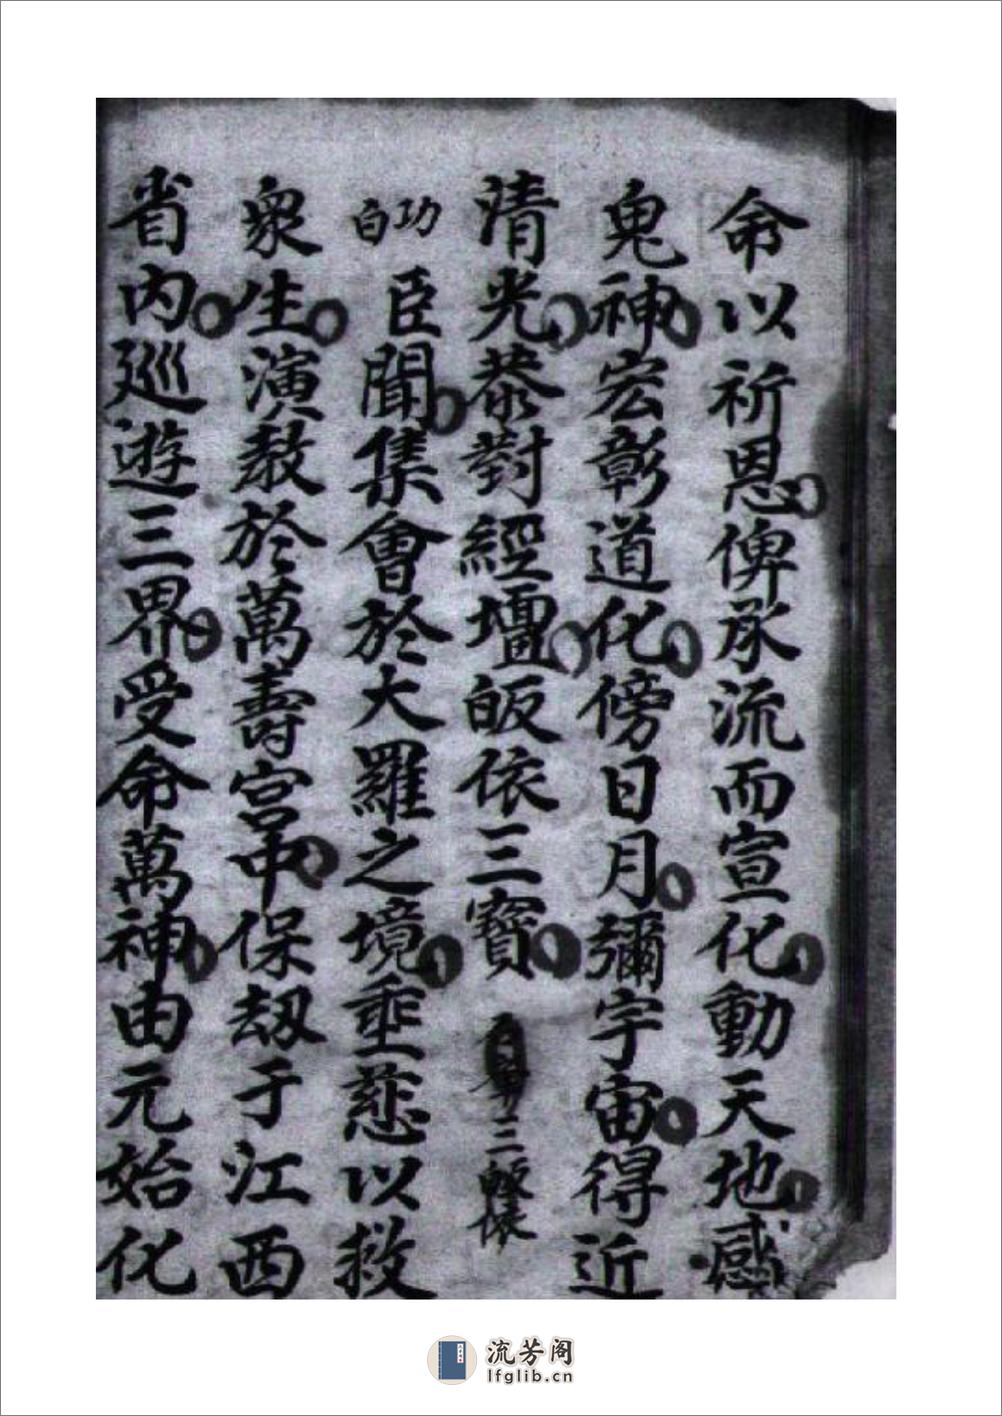 命以祈恩俾承流而宣化動天地感
鬼神宏彰道化傍日月彌宇宙得近
清光恭對經壇皈依三寶 三皈依
功白 臣聞集會於大羅之境垂慈以救
眾生演教於萬壽宮中保劫于江西
省內巡遊三界受命萬神由元始化
流芳阁
lfglib.cn